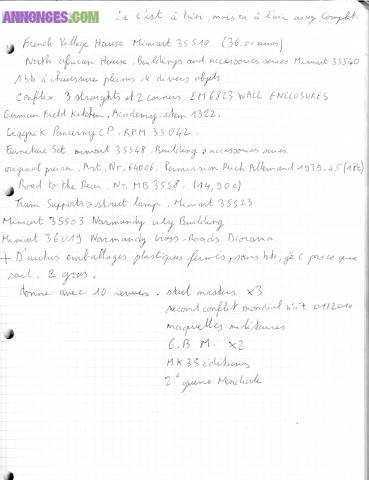 ANNONGES.COM
Le c'est à trier, mais ça à l'air assez complet.
French Village House Miniart 35510. (36,00 euros)
North African House. Buildings and accessories series Miniart 35540
1 bte à chaussure pleines de divers objets
Conflix 3 straights et 2 corners. EM6823 WALL ENCLOSURES
German Field Kitchen. Academy. item 1322.
CP. RPM 35042.
Furniture Set miniart 35548. Building & accessories series.
original preiser. Art. Nr. 64006. Permission Reich Allemand 1939-45 (18€)
Road to the Rear. Nr. MB 3558. (14,90€)
Tram Supports & street lamp. Miniart 35523
Miniart 35503 Normandy city Building
Miniart 36019 Normandy Cross-Roads Diorama.
+ D'autres emballages plastiques fermés, sans bte, je c pas ce que
soit. 2 gros.
donne avec 10 revues. steel masters x3
second conflit mondial n°7 01/2010
maquettes militaires
G.B.M. x2
MK35 éditions
2° guerre Mondiale